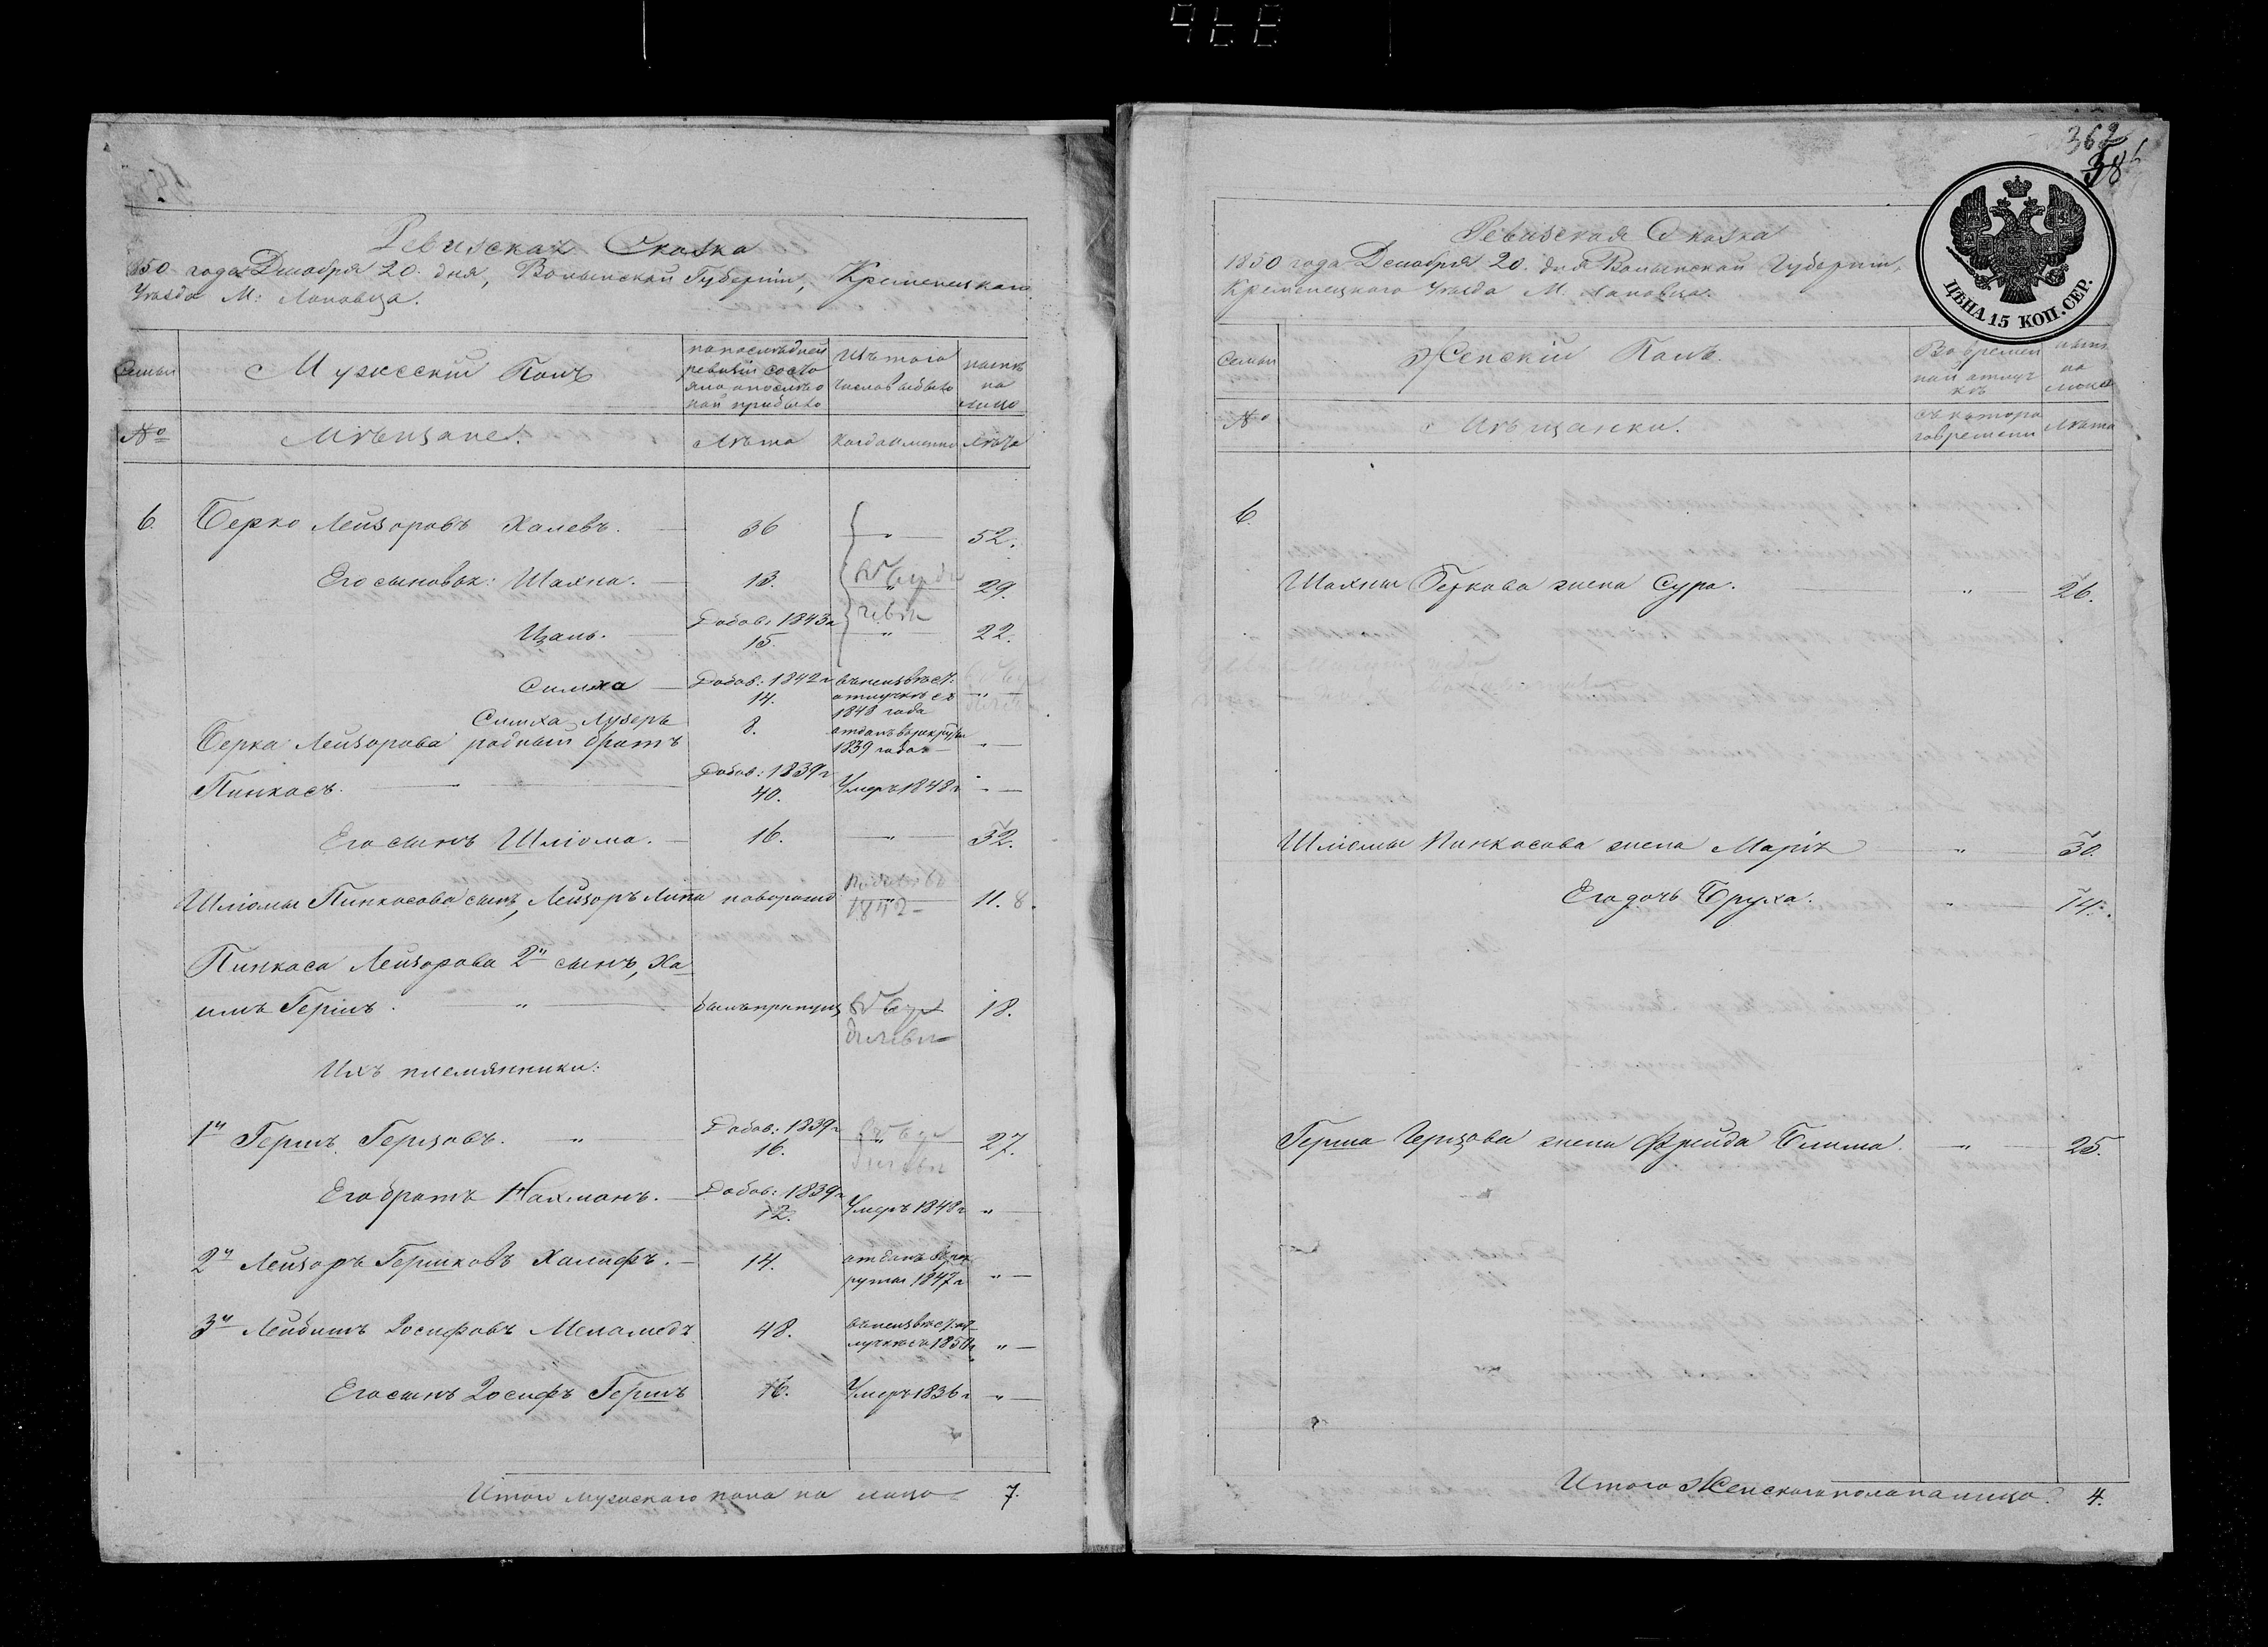 Ревизская Сказка
1850 года Декабря 20. дня, Волынской Губернiи, Кременецкаго
Уѣзда М: Лановца.
Семьи
Мужескiй Полъ
по послѣдней ревизiи состояло и послѣ оной прибыло
Изъ того числа выбыло
нынѣ на лицо
№
Мѣщане.
Лѣта
когда именно
Лѣта
6. Берко Лейзоровъ Халевъ. 36 " 52.
Его сыновья: Шахна. 13. " 29.
Цаль. Добав: 1843 г 15. " 22.
Симха Добав: 1842 г 14. въ неизвѣст: отлучкѣ съ 1848 года "
Симха Лузеръ 8. отданъ въ рекруты 1839 года "
Берка Лейзорова родный братъ
Пинкасъ. Добав: 1839 г 40. Умеръ 1848 г "
Его сынъ Шлiома. 16. " 32.
Шлiомы Пинкасова сынъ, Лейзоръ Липа новорожд 1842 11. 8.
Пинкаса Лейзорова 2й сынъ, Ха
имъ Гершъ. " былъ пропущ 18.
Ихъ племянники:
1й Гершъ Герцовъ. " Добав: 1839 г 16. " 27.
Его братъ Нахманъ. Добав: 1839 г 12. Умеръ 1848 г "
2й Лейзоръ Гершковъ Халифъ. 14. отданъ въ рекруты 1847 г "
3й Лейбишъ Iосифовъ Меламедъ 48. въ неизвѣст: отлучкѣ съ 1850 г "
Его сынъ Iосифъ Гершъ 16. Умеръ 1836 г "
Итого мужескаго пола на лицо 7.
362
Ревизская Сказка
1850 года Декабря 20. дня Волынской Губернiи,
Кременецкаго Уѣзда М. Лановца.
ЦѢНА 15 КОП. СЕР.
Семьи
Женскiй Полъ.
Во временной отлучкѣ
нынѣ на лицо
№
Мѣщанки.
съ котораго времени
Лѣта
6.
Шахны Беркова жена Сура. " 26.
Шлiомы Пинкасова жена Марiя " 30.
Его дочь Бруха. " 14.
Герша Герцова жена Фрейда Блима. " 25.
Итого Женскаго пола на лицо. 4.